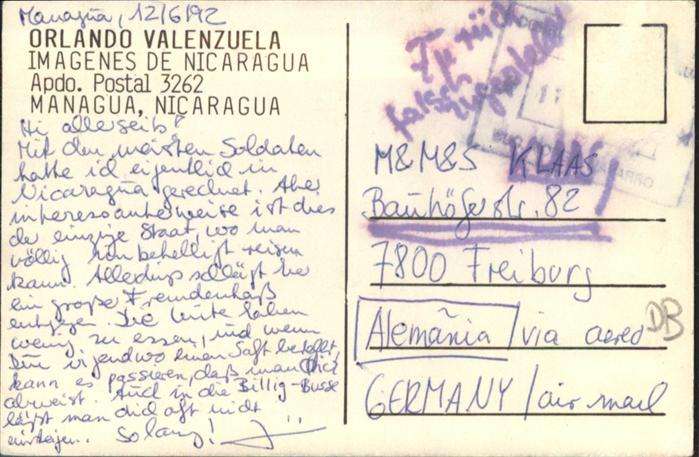 Managua, 12/6/92
ORLANDO VALENZUELA
IMAGENES DE NICARAGUA
Apdo. Postal 3262
MANAGUA, NICARAGUA
Hi allerseits!
Mit den meisten Soldaten
hatte ich eigentlich in
Nicaragua gerechnet. Aber
interessanterweise ist dies
der einzige Staat, wo man
völlig unbehelligt reisen
kann. Allerdings schlägt hier
ein großer Fremdenhaß
entgegen. Die Leute haben
wenig zu essen, und wenn
Du irgendwo einen Saft bestellst,
kann es passieren, daß man Dich
abweist. Auch in die Billig-Busse
läßt man dich oft nicht
einsteigen. So lang!
Zurück
falsch
zugestellt
M&M&S KLAAS
Bauhöferstr. 82
7800 Freiburg
Alemánia / via aereo
DB
GERMANY / air mail